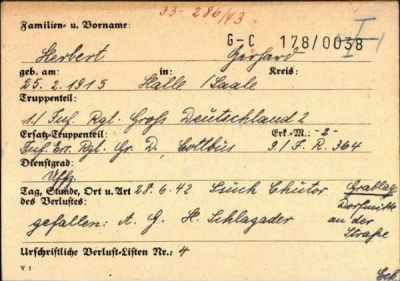 33-286/43
Familien- u. Vorname:
G-C 178/0038 I
Herbert Gerhard
geb. am: in: Kreis:
25.2.1915 Halle/Saale
Truppenteil:
11/Inf. Rgl. Groß Deutschland 2
Ersatz-Truppenteil: Erk.-M.: -2-
Inf. Ers. Rgl. Gr. D., Cottbus 9/I.R. 364
Dienstgrad:
Uffz.
Tag, Stunde, Ort u. Art 28.6.42 Grablage
des Verlustes: Dorfmitte
gefallen: A. G. H. Schlagader an der
Straße
Urschriftliche Verlust-Listen Nr.: 4
V 1